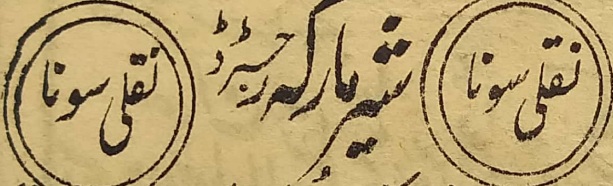 نقلی سونا
شیر مارکہ رجسٹرڈ
نقلی سونا